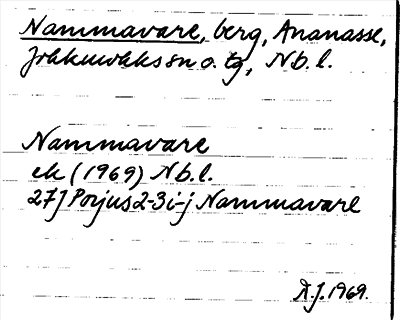 Nammavare, berg, Ananasse,
Jokkmokks sn o. tg, Nb. l.
Nammavare
ek (1969) Nb. l.
27J Porjus 2-3 i-j Nammavare
A.J. 1969.